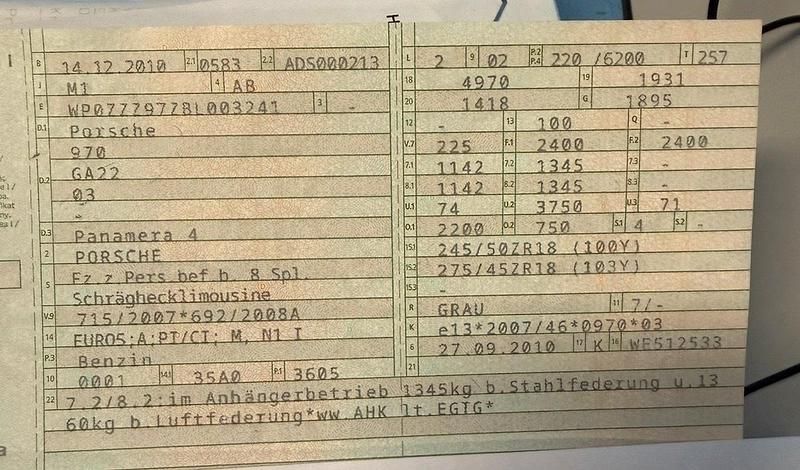 B 14.12.2010 2.1 0583 2.2 ADS000213
J M1 4 AB
E WP0ZZZ97ZBL003241 3 -
D.1 Porsche
970
D.2 GA22
03
-
D.3 Panamera 4
2 PORSCHE
5 Fz.z.Pers.bef.b. 8 Spl.
Schrägheck­limousine
V.9 715/2007*692/2008A
14 EURO5;A;PT/CT: M, N1 I
P.3 Benzin
10 0001 14.1 35A0 P.1 3605
L 2 9 02 P.2 P.4 220 /6200 T 257
18 4970 19 1931
20 1418 G 1895
12 - 13 100 Q -
V.7 225 F.1 2400 F.2 2400
7.1 1142 7.2 1345 7.3 -
8.1 1142 8.2 1345 8.3 -
U.1 74 U.2 3750 U.3 71
O.1 2200 O.2 750 S.1 4 S.2 -
15.1 245/50ZR18 (100Y)
15.2 275/45ZR18 (103Y)
15.3 -
R GRAU 11 7/-
K e13*2007/46*0970*03
6 27.09.2010 17 K 16 WE512533
21
22 7.2/8.2:im Anhängerbetrieb 1345kg b.Stahlfederung u.13
60kg b.Luftfederung*ww.AHK lt.EGTG*